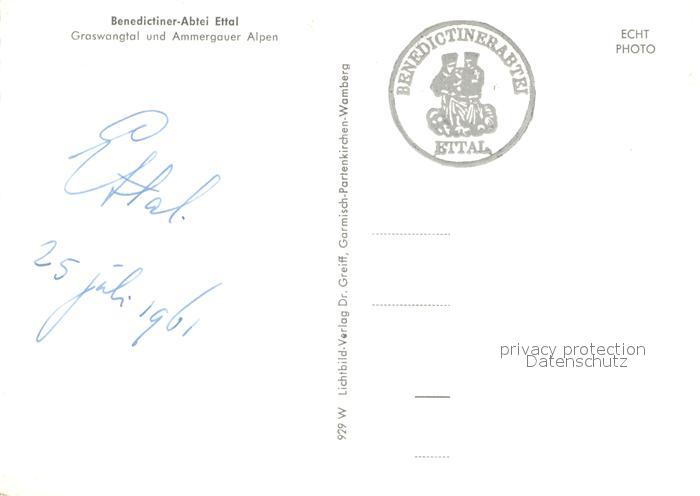 Benedictiner-Abtei Ettal
Graswangtal und Ammergauer Alpen
Ettal.
25 juli 1961
929 W Lichtbild-Verlag Dr. Greiff, Garmisch-Partenkirchen-Wamberg
BENEDICTINERABTEI
ETTAL
ECHT
PHOTO
privacy protection
Datenschutz